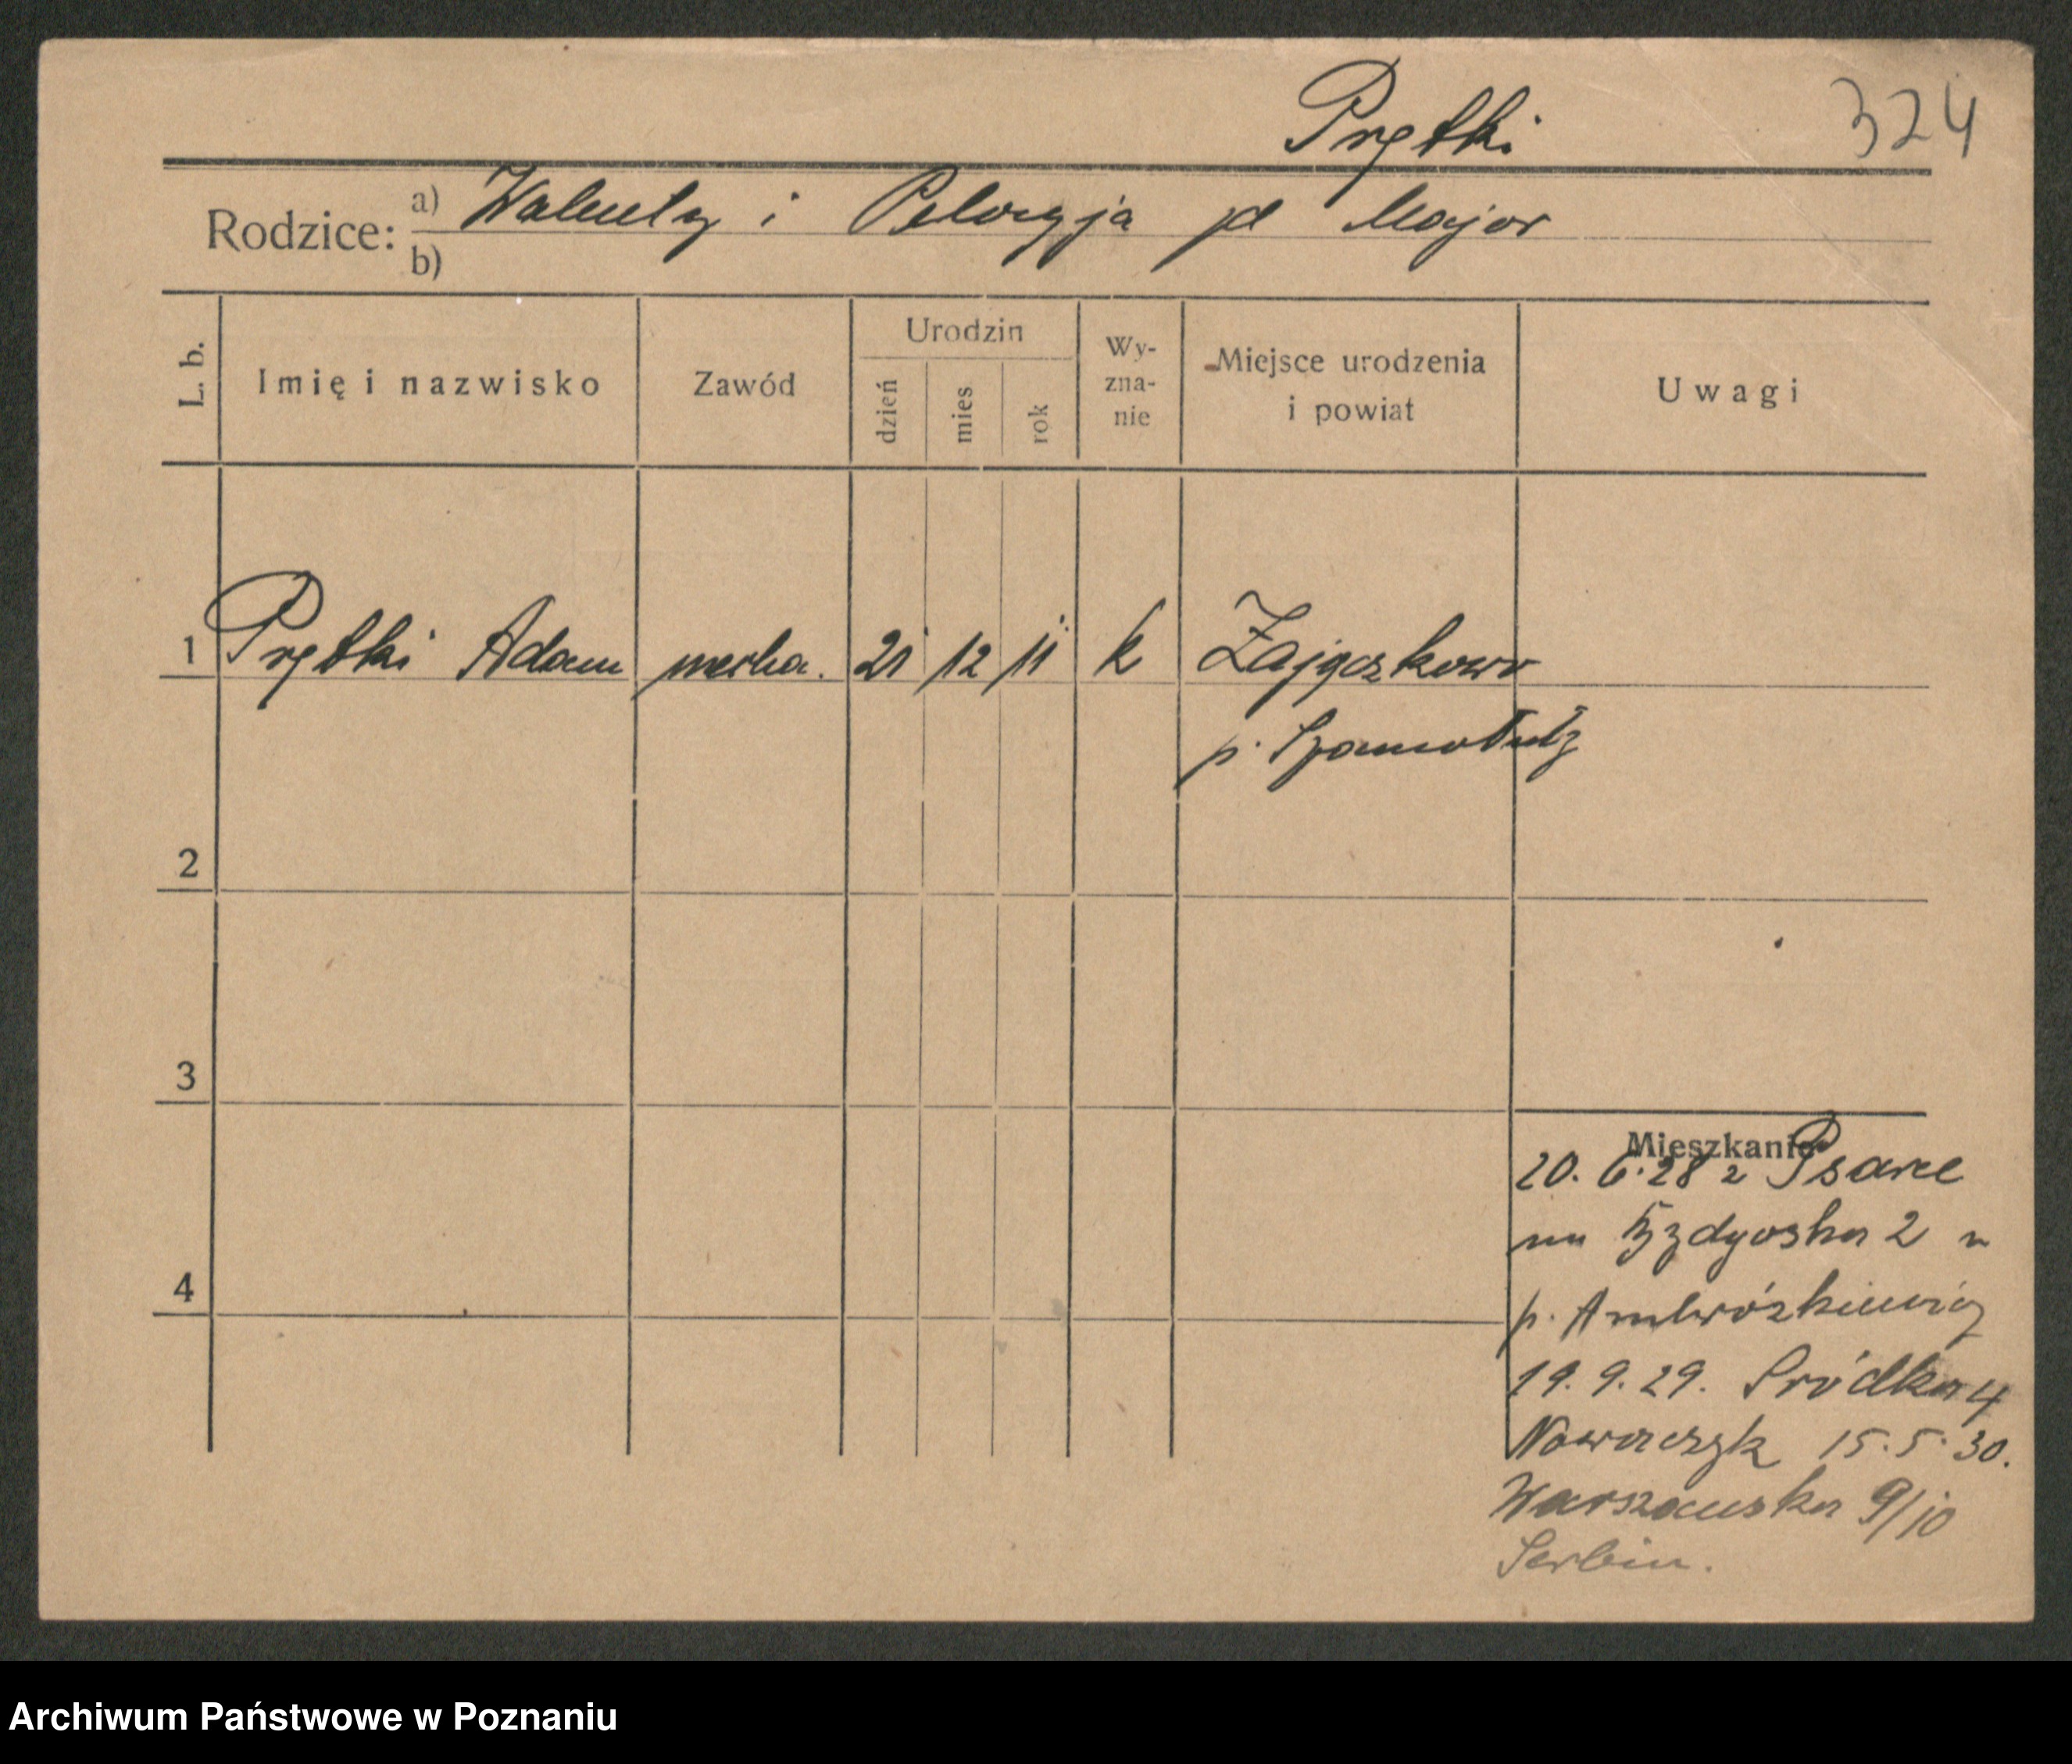 Prętki 324
Rodzice: a) Walenty i Pelagja pd Major
b)
L. b. Imię i nazwisko Zawód Urodzin dzień mies rok Wy-zna-nie Miejsce urodzenia i powiat Uwagi
1 Prętki Adam mecha. 21 12 11 k Zajączkowo
p. Szamotuły
2
3
Mieszkanie
20. 6. 28 z Psarce
na Bydgoska 2 u
4
p. Ambróżkiewicz
19. 9. 29. Śródka 4
Nowaczyk 15. 5. 30.
Warszawska 9/10
Serbin.
Archiwum Państwowe w Poznaniu